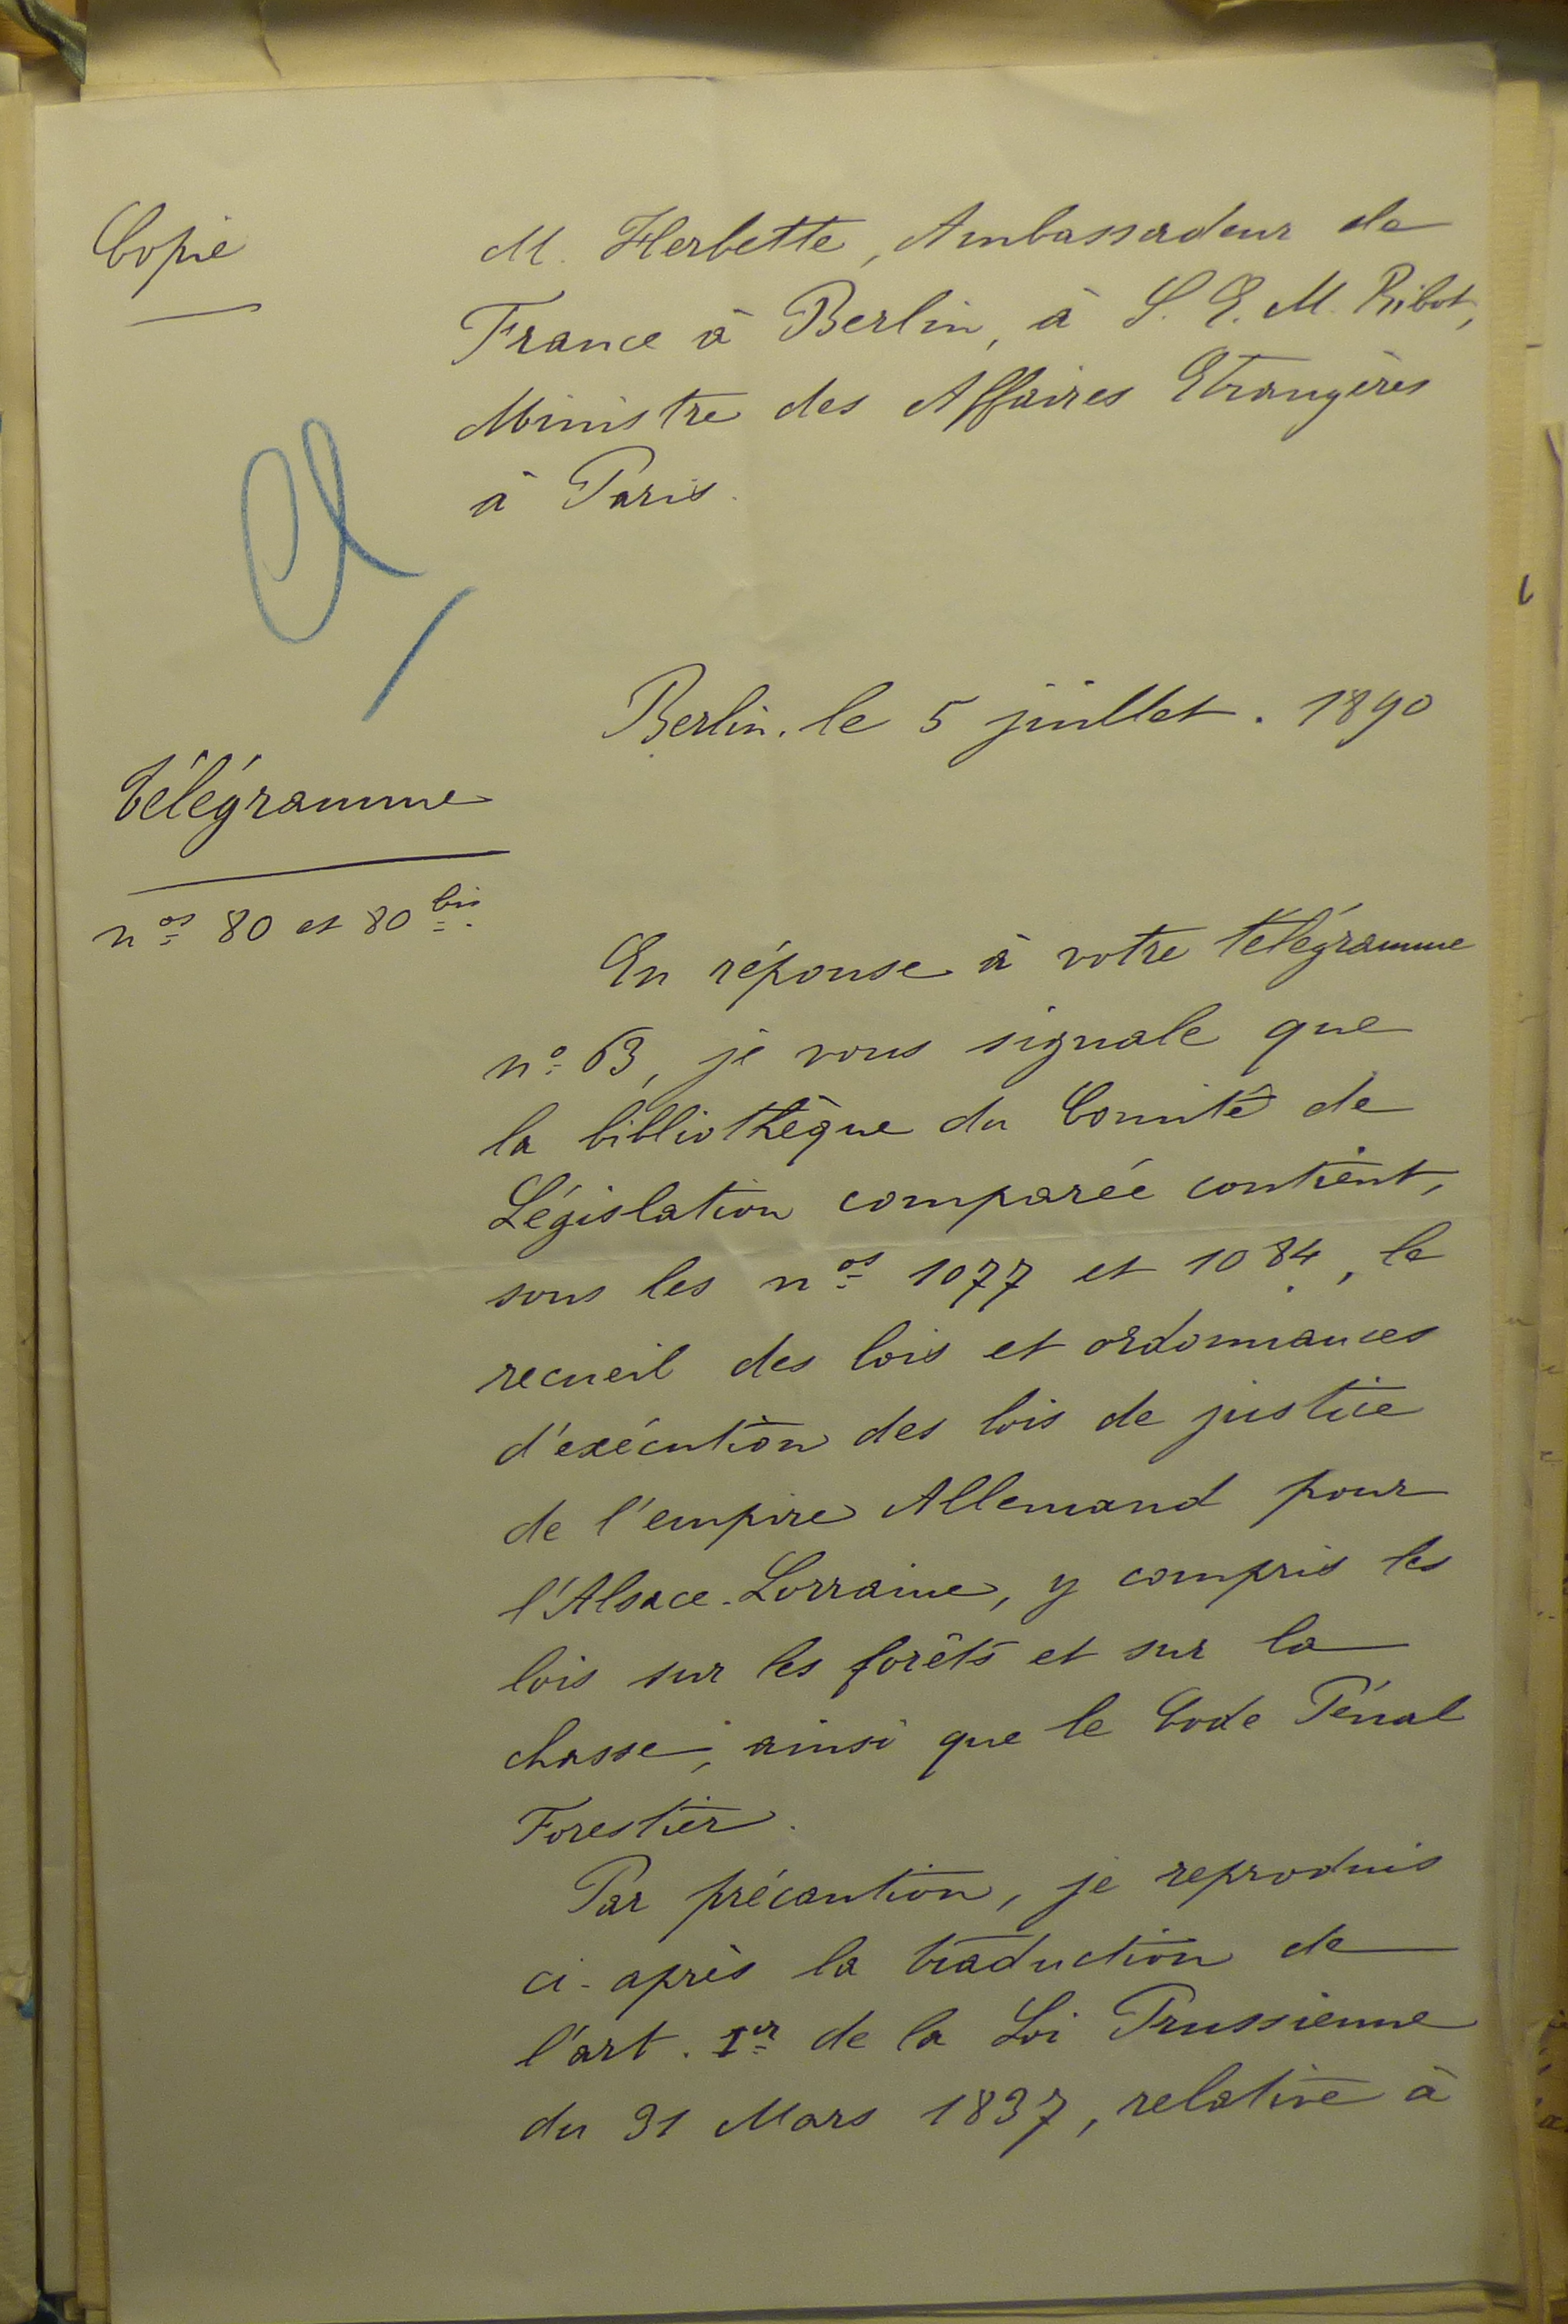 Copie
M. Herbette, Ambassadeur de
France à Berlin, à S. E. M. Ribot,
Ministre des Affaires Etrangères
à Paris.
Berlin. le 5 juillet. 1890
Télégramme
nos 80 et 80 bis.
En réponse à votre télégramme
no 63, je vous signale que
la bibliothèque du Comité de
Législation comparée contient,
sous les nos 1077 et 1084, le
recueil des lois et ordonnances
d'exécution des lois de justice
de l'empire Allemand pour
l'Alsace-Lorraine, y compris les
lois sur les forêts et sur la
chasse; ainsi que le Code Pénal
Forestier.
Par précaution, je reproduis
ci-après la traduction de
l'art. 1er de la Loi Prussienne
du 31 Mars 1837, relative à